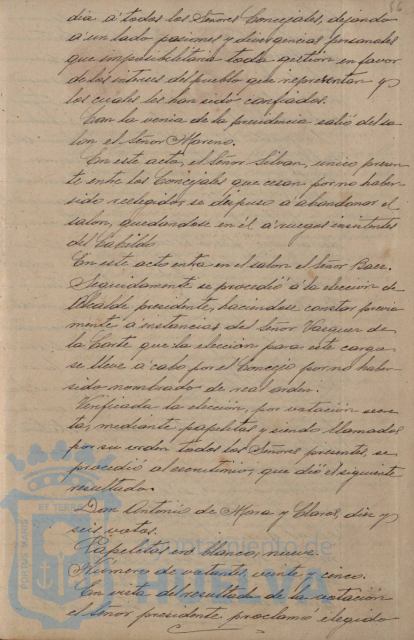 dia á todos los Señores Concejales, dejando
á un lado pasiones y divergencias personales
que imposibilitaria toda gestion en favor
de los intereses del pueblo que representan y
los cuales les han sido confiados.
Con la venia de la presidencia salió del sa-
lon el Señor Moreno.
En este acto, el Señor Silvan, unico presen-
te entre los Concejales que cesan por no haber
sido reelegidos se dispuso á abandonar el
salon, quedandose en él á ruegos insistentes
del Cabildo
En este acto entra en el salon el Señor Baez.
Seguidamente se procedió á la eleccion de
Alcalde presidente, haciendose constar previa-
mente á instancias del Señor Vazquez de
la Corte que la eleccion para este cargo
se lleve á cabo por el Concejo por no haber
sido nombrado de real orden.
Verificada la eleccion, por votacion secre-
ta, mediante papeletas y siendo llamados
por su orden todos los Señores presentes, se
procedió al escrutinio, que dió el siguiente
resultado.
Don Antonio de Mora y Claros, diez y
seis votos.
Papeletas en blanco, nueve.
Número de votantes veinte y cinco.
En vista del resultado de la votación
el Señor presidente, proclamó elegido
PORTUS MARIS
ET TERRÆ
Ayuntamiento de
HUELVA